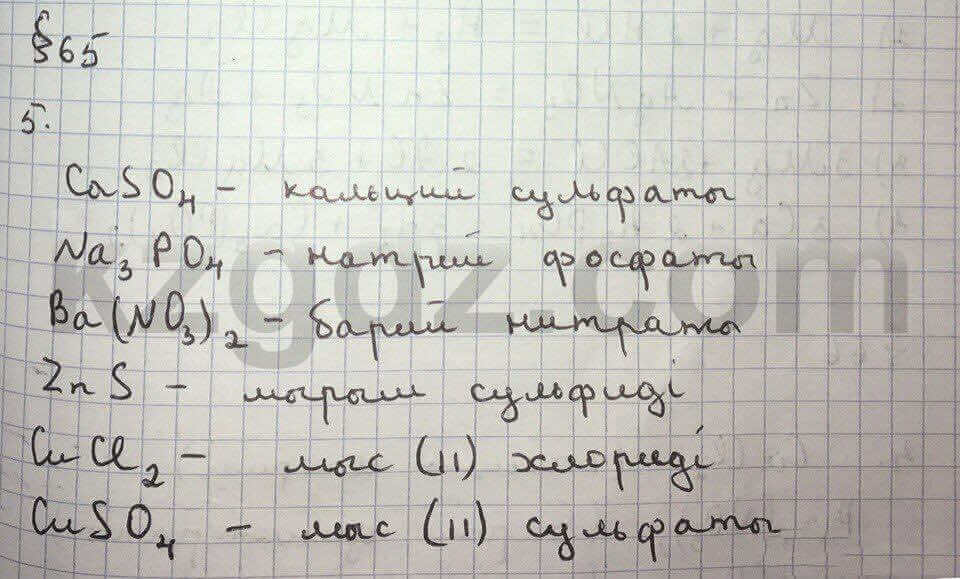 §65
5.
CaSO₄ - кальций сульфаты
Na₃PO₄ - натрий фосфаты
Ba(NO₃)₂ - барий нитраты
ZnS - мырыш сульфиді
CuCl₂ - мыс (II) хлориді
CuSO₄ - мыс (II) сульфаты
kzgdz.com